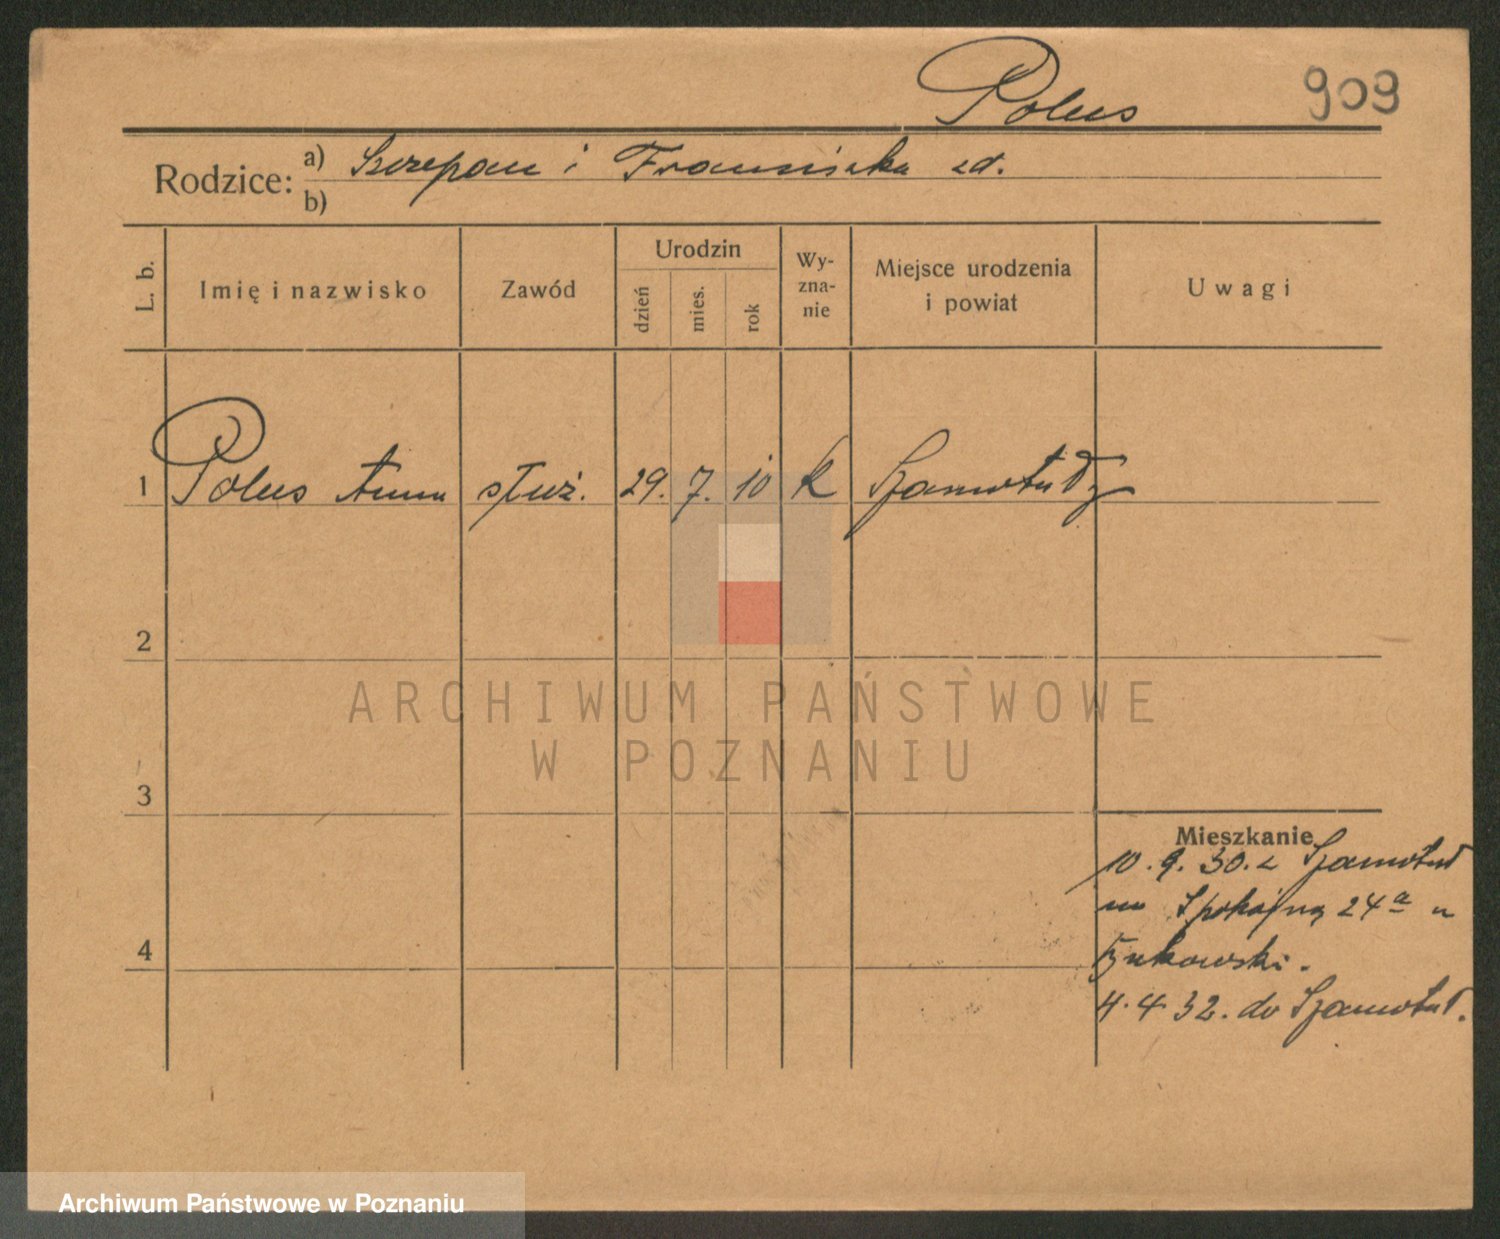 Polus 909
Rodzice: a) Szczepan i Franciszka zd.
b)
L. b. Imię i nazwisko Zawód Urodzin dzień mies. rok Wy-zna-nie Miejsce urodzenia i powiat Uwagi
1 Polus Anna służ. 29. 7. 10 k Szamotuły
2
ARCHIWUM PAŃSTWOWE
W POZNANIU
3
Mieszkanie
10. 9. 30. z Szamotuł
na Spokojną 24a u
4
4. 4. 32. do Szamotuł.
Archiwum Państwowe w Poznaniu